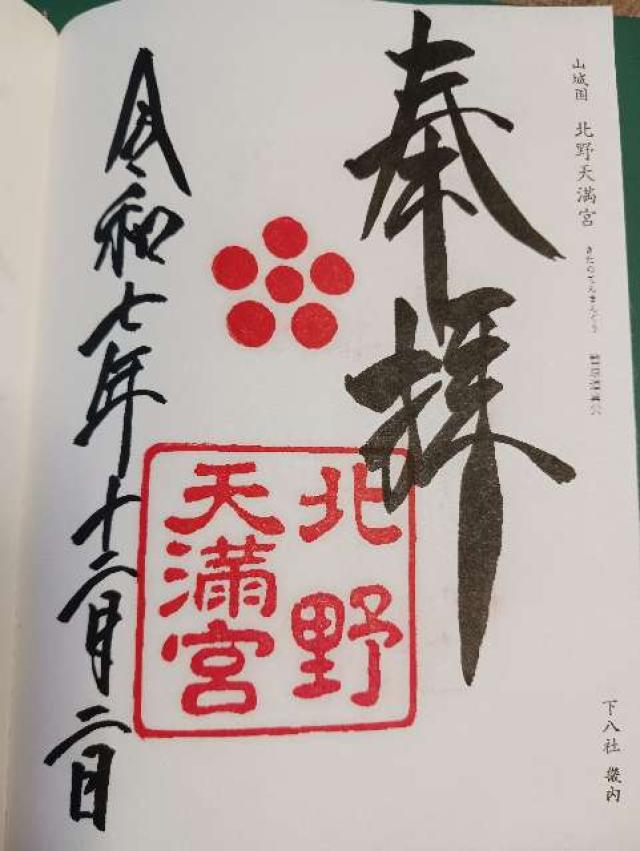 山城国 北野天満宮 きたのてんまんぐう 菅原道真公
下八社 畿内
奉拝
北野
天満宮
令和七年十二月二日